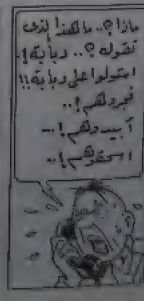 ماذا؟.. ما هذا الذى
تقوله؟.. دبابة!.
استولوا على دبابة!!
فجروهم!..
أبيدوهم!..
اسحقوهم!..